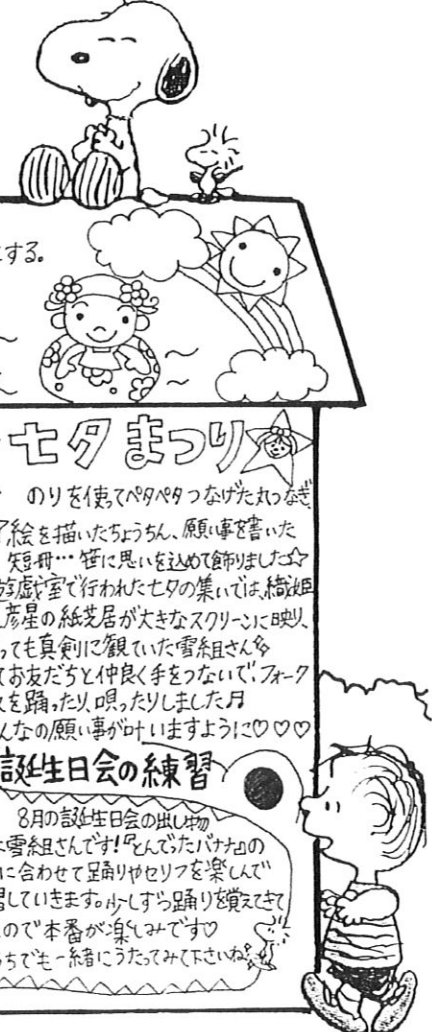 する。
七夕まつり
のりを使ってペタペタつなげた丸つなぎ、
絵を描いたちょうちん、願い事を書いた
短冊…笹に思いを込めて飾りました☆
遊戯室で行われた七夕の集いでは、織姫
彦星の紙芝居が大きなスクリーンに映り、
っても真剣に観ていた雪組さん
てお友だちと仲良く手をつないで、フォーク
スを踊ったり、唄ったりしました♬
んなの願い事が叶いますように♡♡♡
誕生日会の練習
8月の誕生日会の出し物
雪組さんです!『とんでったバナナ』の
に合わせて踊りやセリフを楽しんで
習していきます。少しずつ踊りを覚えてきて
ので本番が楽しみです♡
ちでも一緒にうたってみて下さいね